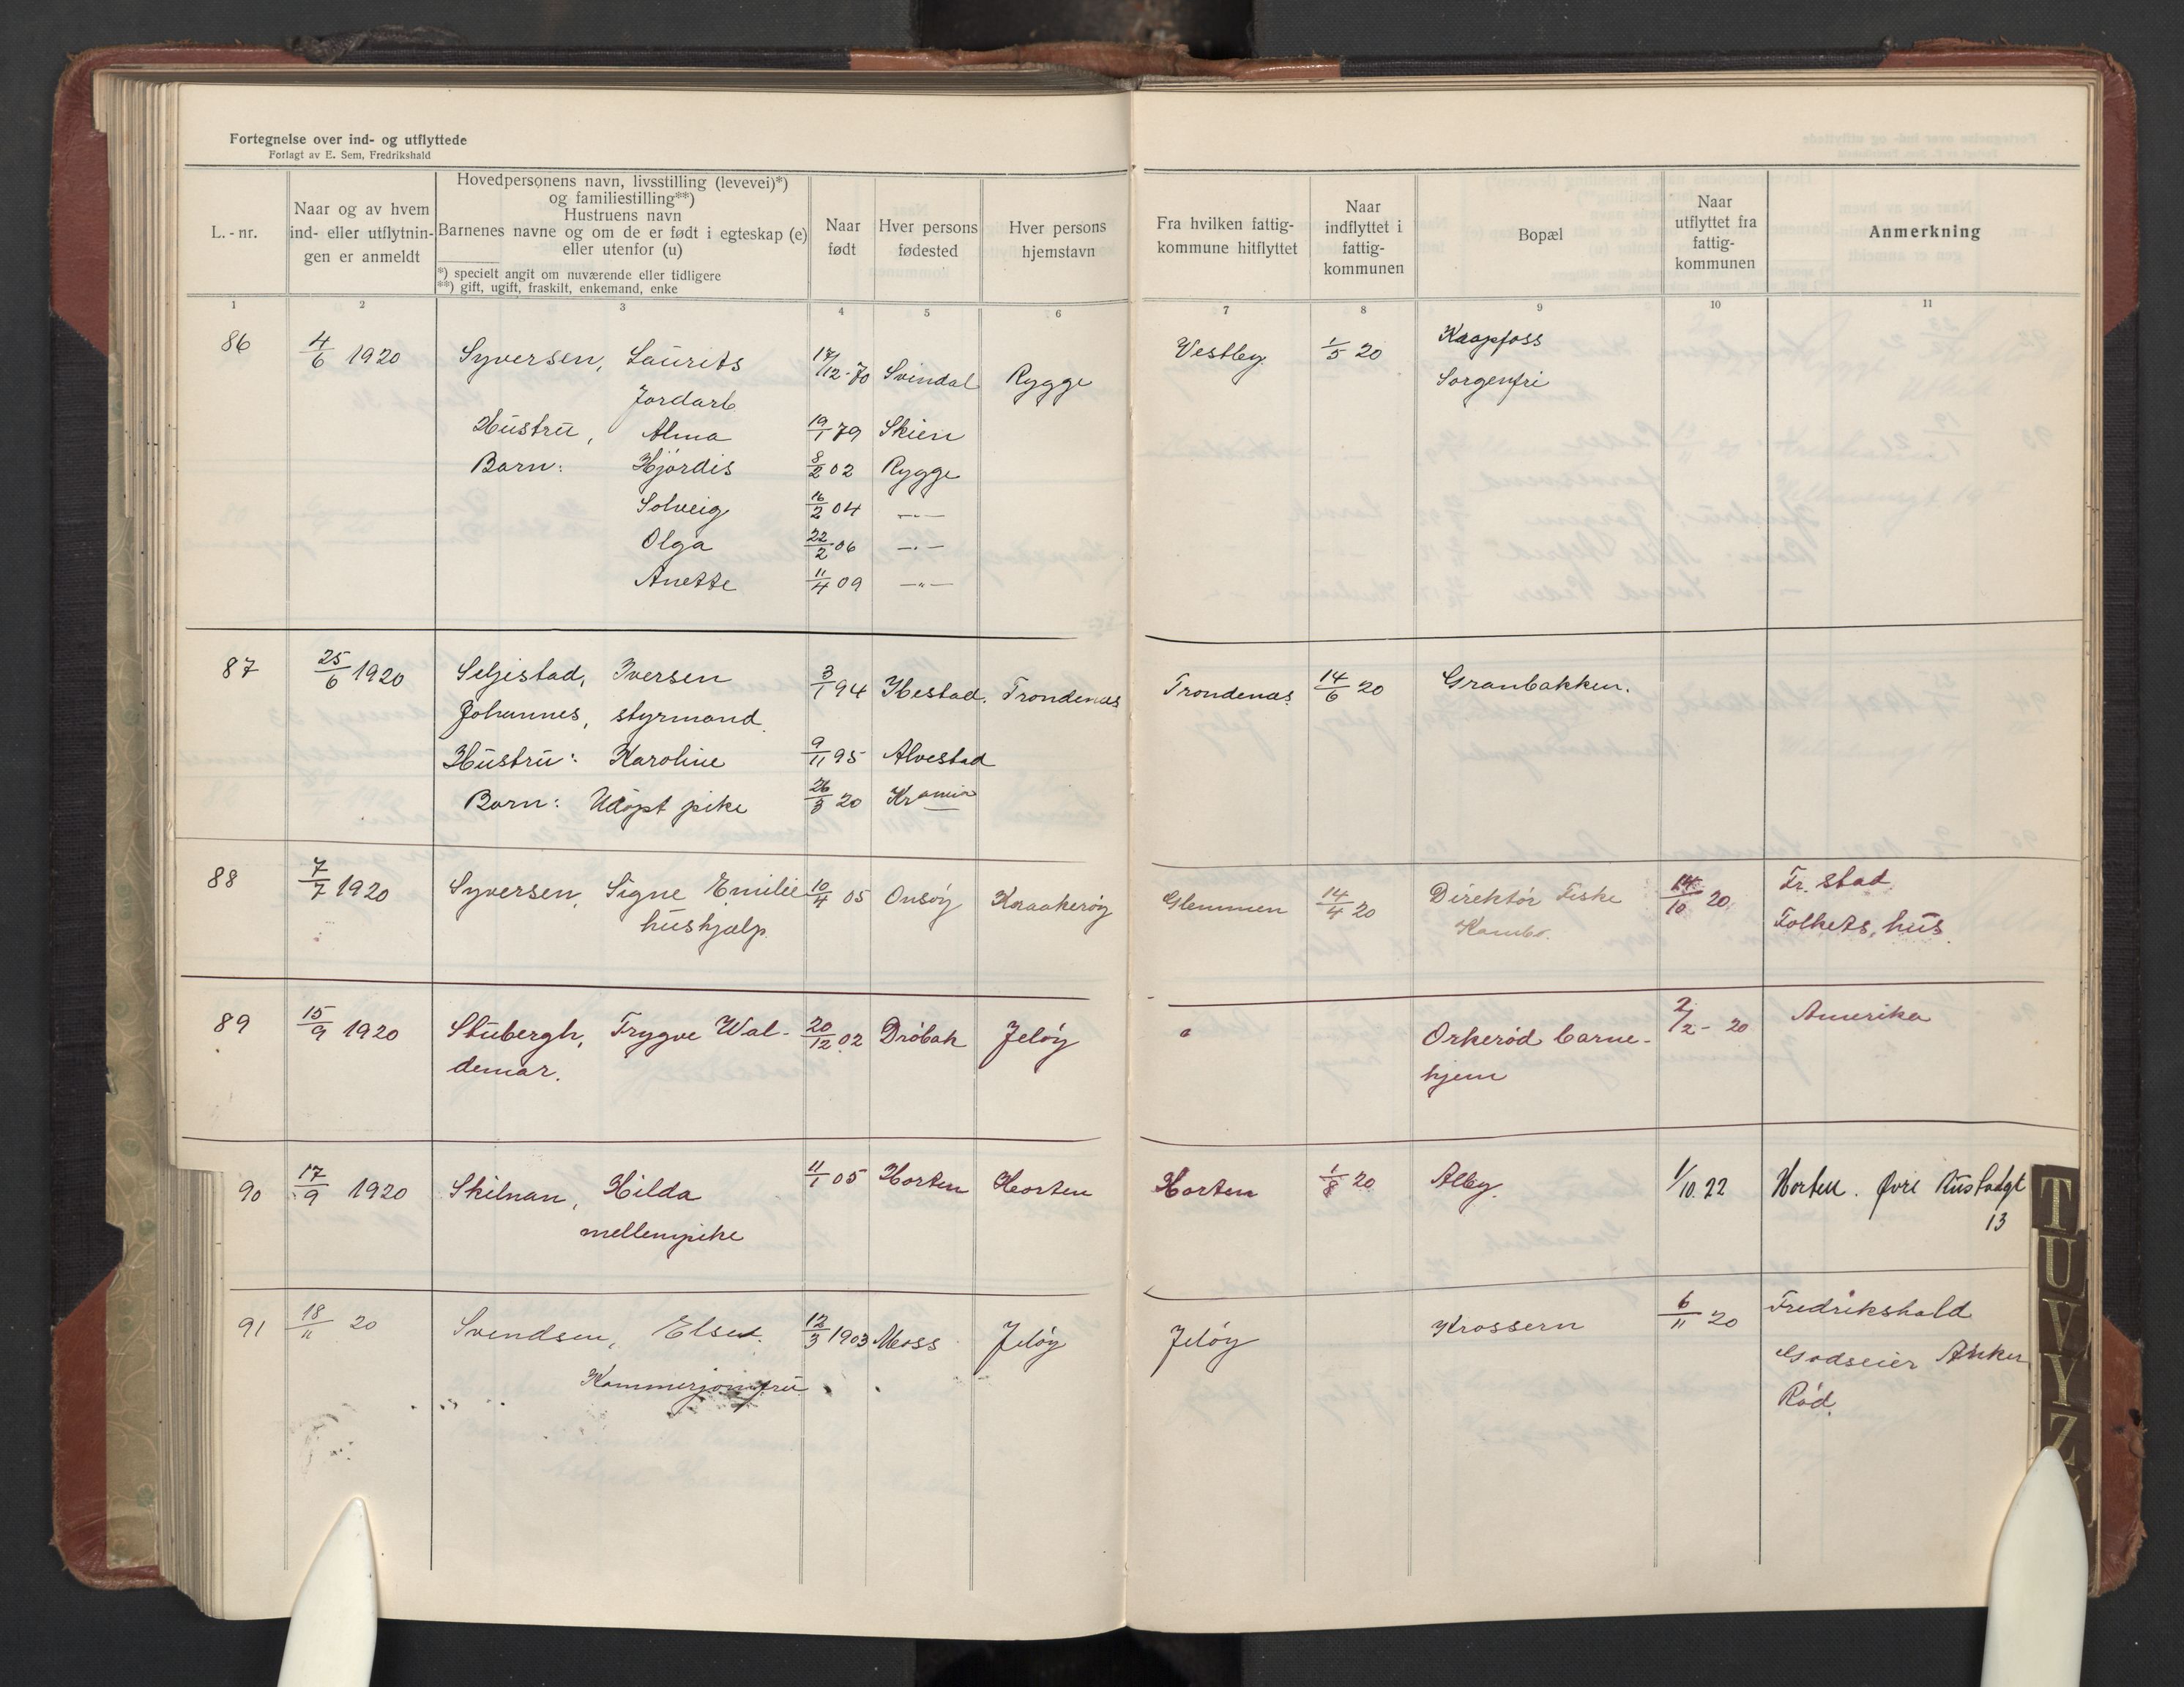 Fortegnelse over ind- og utflyttede
Forlagt av E. Sem, Fredrikshald
L.-nr.
Naar og av hvem
ind- eller utflytnin-
gen er anmeldt
Hovedpersonens navn, livsstilling (levevei)*)
og familiestilling**)
Hustruens navn
Barnenes navne og om de er født i egteskap (e)
eller utenfor (u)
*) specielt angit om nuværende eller tidligere
**) gift, ugift, fraskilt, enkemand, enke
Naar
født
Hver persons
fødested
Hver persons
hjemstavn
Fra hvilken fattig-
kommune hitflyttet
Naar
indflyttet i
fattig-
kommunen
Bopæl
Naar
utflyttet fra
fattig-
kommunen
Anmerkning
1 2 3 4 5 6 7 8 9 10 11
86 4/6 1920 Syversen, Laurits 17/12-70 Svindal Rygge Vestby 1/5 20 Kaapfoss
Jordarb Sorgenfri
Hustru, Alma 19/1 79 Skien
Barn: Hjördis 8/2 02 Rygge
Solveig 16/2 04 —"—
Olga 22/2 06 —"—
Anette 11/4 09 —"—
87 25/6 1920 Seljestad, Iversen 3/1 94 Ibestad. Trondenæs Trondenæs 14/6 20 Granbakken.
Johannes, styrmand.
Hustru: Karoline 9/11 95 Alvestad
Barn: Udöpt pike 26/3 20 Kr ania
88 7/7 1920 Syversen, Signe Emilie 10/4 05 Onsöy Kraakeröy Glemmen 14/4 20 Direktör Fiske 14/10 20 Fr. stad
hushjælp. Kambo. Folkets hus.
89 15/9 1920 Stubergh, Trygve Wal- 20/12 02 Dröbak Jelöy " Orkeröd barne- 2/12-20 Amerika
demar. hjem
90 17/9 1920 Skilnan, Hilda 11/1 05 Horten Horten Horten 1/8 20 Alby. 1/10.22 Horten. Øvre Rustadgt
mellempike 13
91 18/11 20 Svendsen, Else. 12/3 1903 Moss Jelöy Jelöy Krossern 6/11 20 Fredrikshald
Kammerjomfru Godseier Anker
Röd.
T
U
V
Y
Z